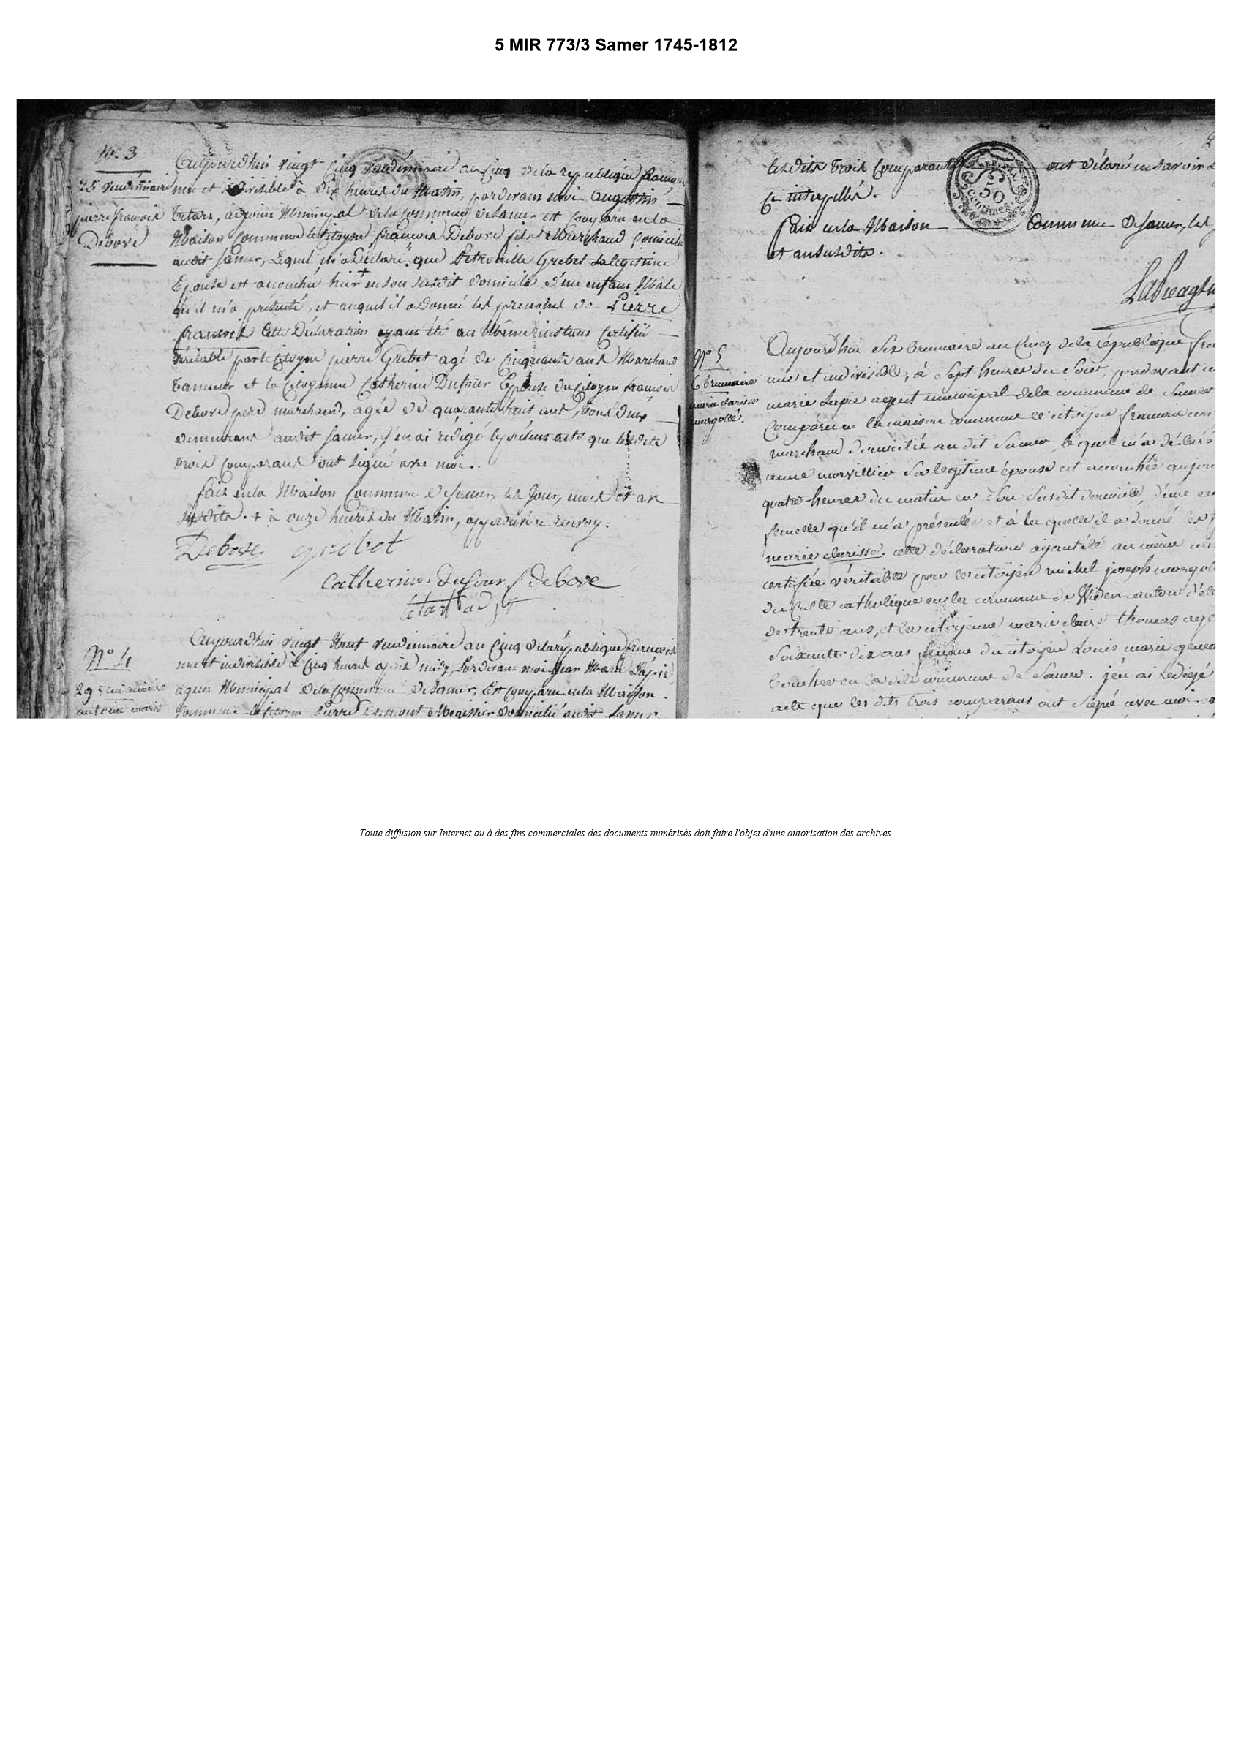 5 MIR 773/3 Samer 1745-1812
N.° 3
25 vendémiaire
pierre françois
Debove
Aujourd'hui vingt Cinq vendémiaire an Cinq de la république franc.
une et indivisible à dix heures du Matin, pardevant moi Augustin
adjoint Municipal de la Commune de Samer est Comparu en la
Maison Commune le Citoyen françois Debove fils Marchand domicilié
audit Samer, lequel m'a Déclaré, que Petronille Grebet Sa légitime
Epouse est accouchée hier + en son susdit domicile d'un enfant Mâle
qu'il m'a présenté, et auquel il a donné les prénoms de Pierre
françois Cette Déclaration ayant été au Même instant Certifiée
véritable par le Citoyen pierre Grebet agé de Cinquante ans Marchand
tanneur et la Citoyenne Catherine Dufour Epouse du Citoyen françois
Debove père marchand, agée de quarante huit ans, tous deux
demeurans audit Samer, j'en ai rédigé le présent acte que lesdits
trois Comparans ont signé avec moi..
fait en la Maison Commune de Samer les Jour, mois et an
susdits. + à onze heures du Matin, approuvé le renvoy.
Debove grebet
Catherine Dufour f debove
N° 4
29 vendémiaire
Aujourd'hui vingt Neuf vendémiaire an Cinq de la république francoise
une et indivisible à Cinq heures après midy, Pardevant moi Jean Marie Lapie
agent Municipal de la Commune de Samer, Est Comparu en la Maison
Commune le Citoyen Pierre domicilié audit Samer
lesdits trois Comparans ont déclaré ne savoir
ce interpellé.
fait en la Maison Commune de Samer, les
et an susdits.
50
N° 5
6 brumaire
marie clarisse
Aujourd'hui six brumaire an Cinq de la république
une et indivisible, à sept heures du soir, pardevant
marie Lapie agent municipal de la commune de Samer
comparu en la maison commune le citoyen francois
marchand domicilié audit Samer lequel m'a déclaré
anne sa legitime épouse est accouchée aujour
quatre heures du matin en son susdit domicile, d'une en
femelle qu'il m'a présentée et à laquelle il a donné les
marie clarisse, cette déclaration ajoutée au même
certifiée véritable par le citoyen michel joseph
du culte catholique en la commune de
de trente ans, et la citoyenne marie claire thomas age
soixante dix ans femme du citoyen Louis marie
boucher en la dite commune de Samer. j'en ai rédigé
acte que les dits trois comparans ont signé avec moi
Toute diffusion sur Internet ou à des fins commerciales des documents numérisés doit faire l'objet d'une autorisation des archives